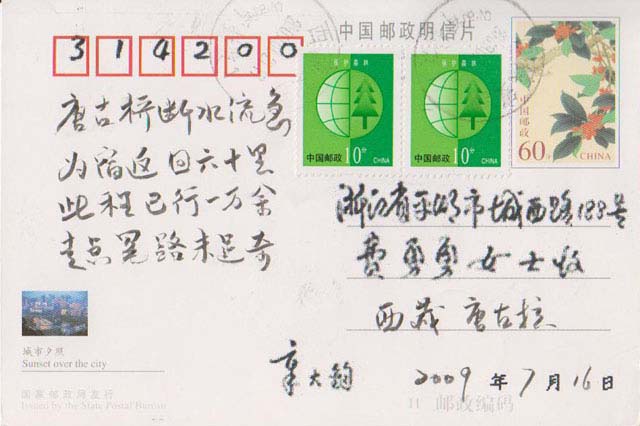 中国邮政明信片
314200
保护森林
中国邮政 10分 CHINA
保护森林
中国邮政 10分 CHINA
中国邮政
60分 CHINA
唐古桥断水流急
为宿返回六十里
此程已行一万余
走点冤路未足奇
浙江省平湖市城西路188号
费勇勇女士收
西藏 唐古拉
章大钧 2009年7月16日
城市夕照
Sunset over the city
国家邮政局发行
Issued by the State Postal Bureau
邮政编码